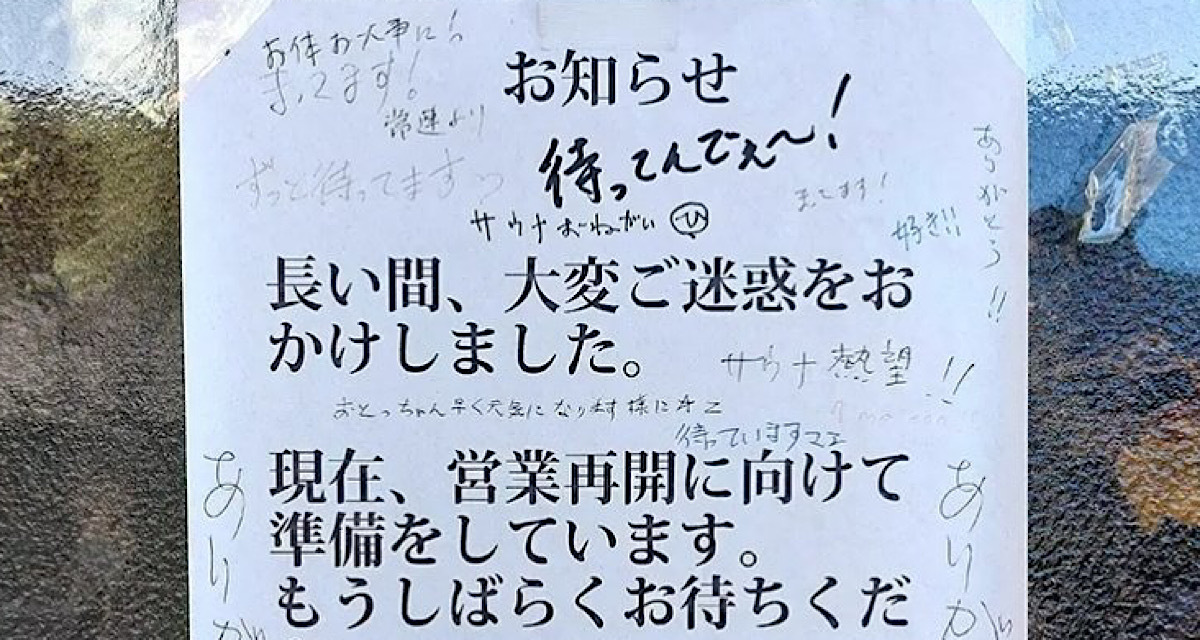 お体お大事に!
まってます!
常連より
お知らせ
待ってんでぇ〜!
ずっと待ってます
まってます!
サウナおねがい ㋪
好き!!
ありがとう!!
長い間、大変ご迷惑をお
かけしました。
サウナ熱望!!
おとっちゃん早く元気になります様に
待っていますマエ
現在、営業再開に向けて
準備をしています。
もうしばらくお待ちくだ
ありが
ありが